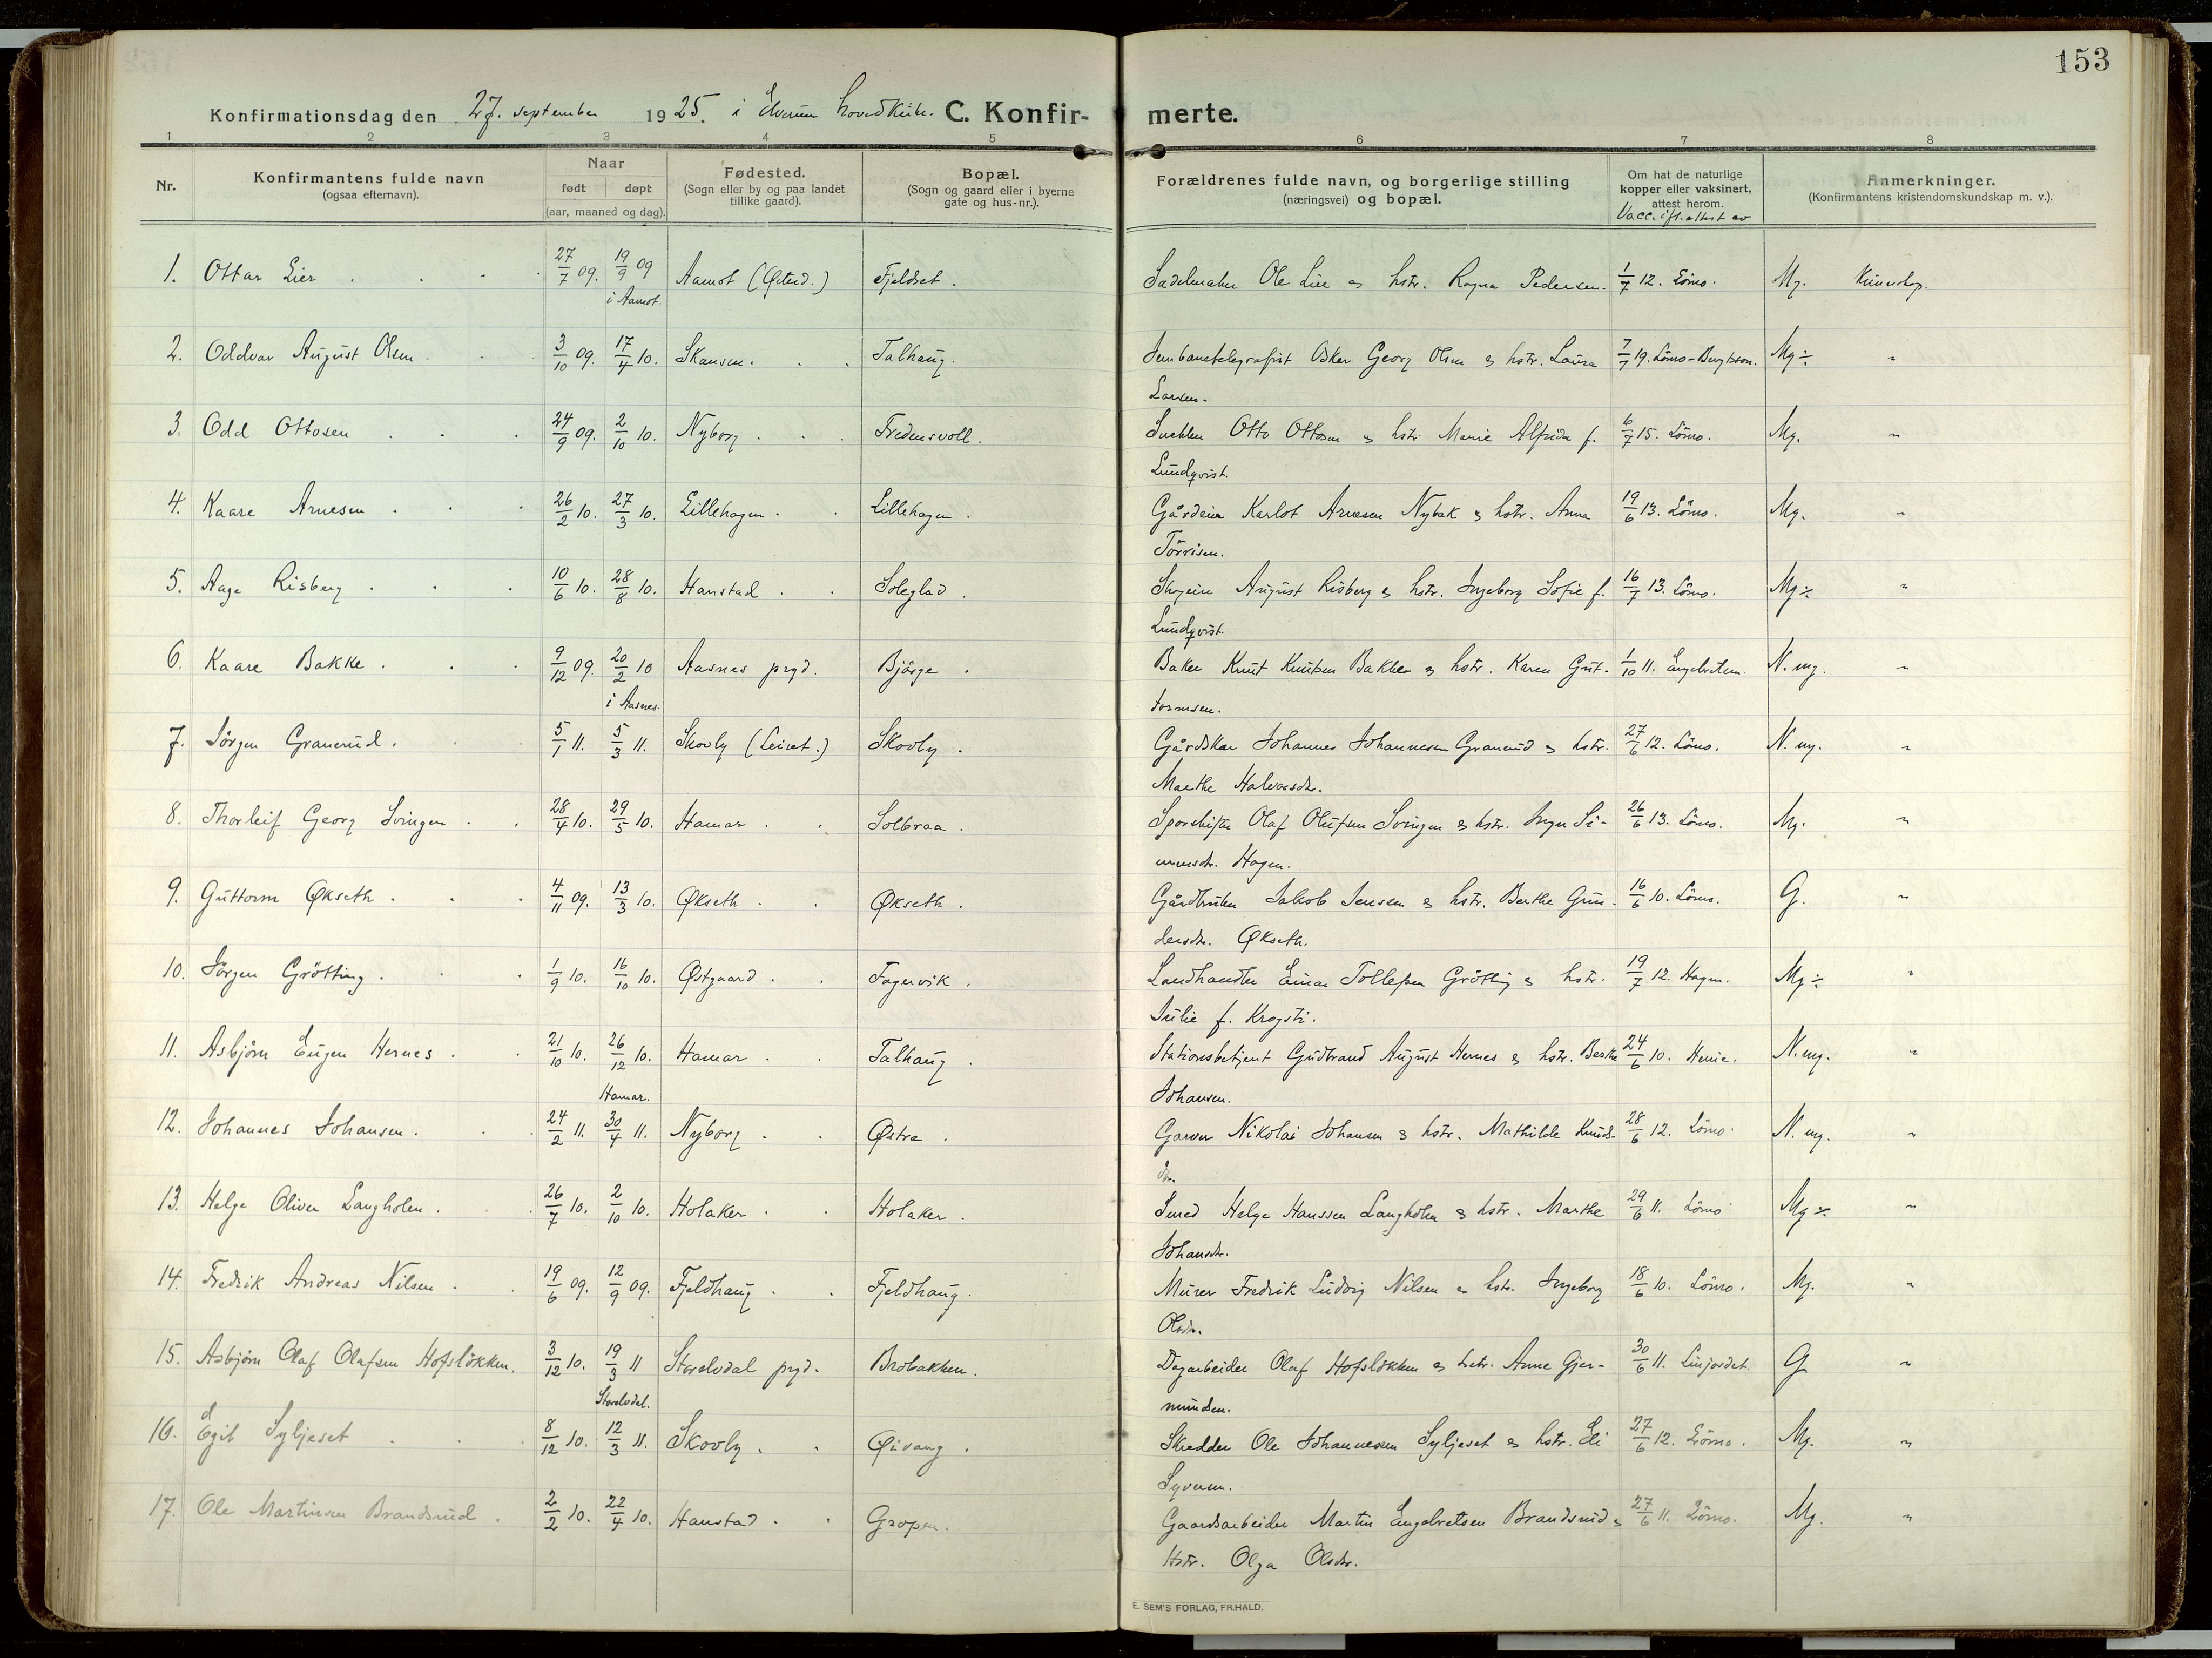 153
Konfirmationsdag den 27. september 1925. i Elverum hovedkirke. C. Konfir- merte.
1 2 3 4 5 6 7 8
Nr.
Konfirmantens fulde navn
(ogsaa efternavn).
Naar
født døpt
(aar, maaned og dag).
Fødested.
(Sogn eller by og paa landet
tillike gaard).
Bopæl.
(Sogn og gaard eller i byerne
gate og hus-nr.).
Forældrenes fulde navn, og borgerlige stilling
(næringsvei) og bopæl.
Om hat de naturlige
kopper eller vaksinert,
attest herom.
Vacc. ifl. attest av
Anmerkninger.
(Konfirmantens kristendomskundskap m. v.).
1. Ottar Lier 27/7 09. 19/9 09 Aamot (Østerd.) Fjeldset. Sadelmaker Ole Lier og hstr. Ragna Pedersen. 1/7 12. Lömo. Mg. Kunnskap.
i Aamot.
2. Oddvar August Olsen 3/10 09. 17/4 10. Skansen. Talhaug. Jernbanetelegrafist Oskar Georg Olsen og hstr. Laura 7/7 19. Lömo-Bengtsson. Mg ÷ "
Larsen.
3. Odd Ottosen 24/9 09. 2/10 10. Nyborg Fredensvoll. Snekker Otto Ottosen og hstr. Marie Alfrida f. 6/7 15. Lömo. Mg. "
Lundqvist.
4. Kaare Arnesen 26/2 10. 27/3 10. Lillehagen Lillehagen. Gårdeier Karlot Arnesen Nybak og hstr. Anna 19/6 13. Lömo. Mg. "
Törrisen.
5. Aage Risberg 10/6 10. 28/8 10. Hanstad Soleglad. August Risberg og hstr. Ingeborg Sofie f. 16/7 13. Lömo. Mg ÷ "
Lundqvist.
6. Kaare Bakke 9/12 09. 20/2 10 Aasnes prgd. Bjørge. Baker Knut Knutsen Bakke og hstr. Karen Gut- 1/10 11. Engebretsen. N. mg. "
i Aasnes. tormsen.
7. Jörgen Granerud. 5/1 11. 5/3 11. Skovly (Leiret.) Skovly. Gårdskar Johannes Johannesen Granerud og hstr. 27/6 12. Lömo. N. mg. "
Marthe Halvorsdr.
8. Thorleif Georg Svingen 28/4 10. 29/5 10. Hamar Solbraa. Sporskifter Olaf Olufsen Svingen og hstr. Inger Si- 26/6 13. Lömo. Mg. "
mensdr. Hagen.
9. Guttorm Økseth 4/11 09. 13/3 10. Økseth Økseth. Gårdbruker Jakob Jensen og hstr. Berthe Gun- 16/6 10. Lömo. G. "
dersdr. Økseth.
10. Jörgen Grötting 1/9 10. 16/10 10. Østgaard Fagervik. Landhandler Einar Tollefsen Grötting og hstr. 19/7 12. Hagen. Mg ÷ "
Julie f. Krogsti.
11. Asbjörn Eugen Hernes 21/10 10. 26/12 10. Hamar Talhaug. Stationsbetjent Gudbrand August Hernes og hstr. Berthe 24/6 10. Henie. N. mg. "
Hamar. Johansen.
12. Johannes Johansen. 24/2 11. 30/4 11. Nyborg Østra. Garver Nikolai Johansen og hstr. Mathilde Knuds- 28/6 12. Lömo. N. mg. "
dtr.
13. Helge Oliver Langholen. 26/7 10. 2/10 10. Holaker Holaker. Smed Helge Hanssen Langholen og hstr. Marthe 29/6 11. Lömo Mg ÷ "
Johansdr.
14. Fredrik Andreas Nilsen 19/6 09. 12/9 09. Fjeldhaug Fjeldhaug. Murer Fredrik Ludvig Nilsen og hstr. Ingeborg 18/6 10. Lömo. Mg. "
Olsdr.
15. Asbjörn Olaf Olafsen Hofslökken. 3/12 10. 19/3 11 Storelvdal prgd. Brobakken. Dagarbeider Olaf Hofslökken og hstr. Anne Gjer- 30/6 11. Linjordet. G "
Storelvdal. mundsen.
16. Egil Syljeset 8/12 10. 12/3 11. Skovly Øivang. Skredder Ole Johannessen Syljeset og hstr. Eli 27/6 12. Lömo. Mg. "
Syversen.
17. Ole Martinsen Brandsrud 2/2 10. 22/4 10. Hanstad Gropen. Gaardsarbeider Martin Engebretsen Brandsrud og 27/6 11. Lömo. Mg. "
Hstr. Olga Olsdr.
E. SEM'S FORLAG, FR.HALD.